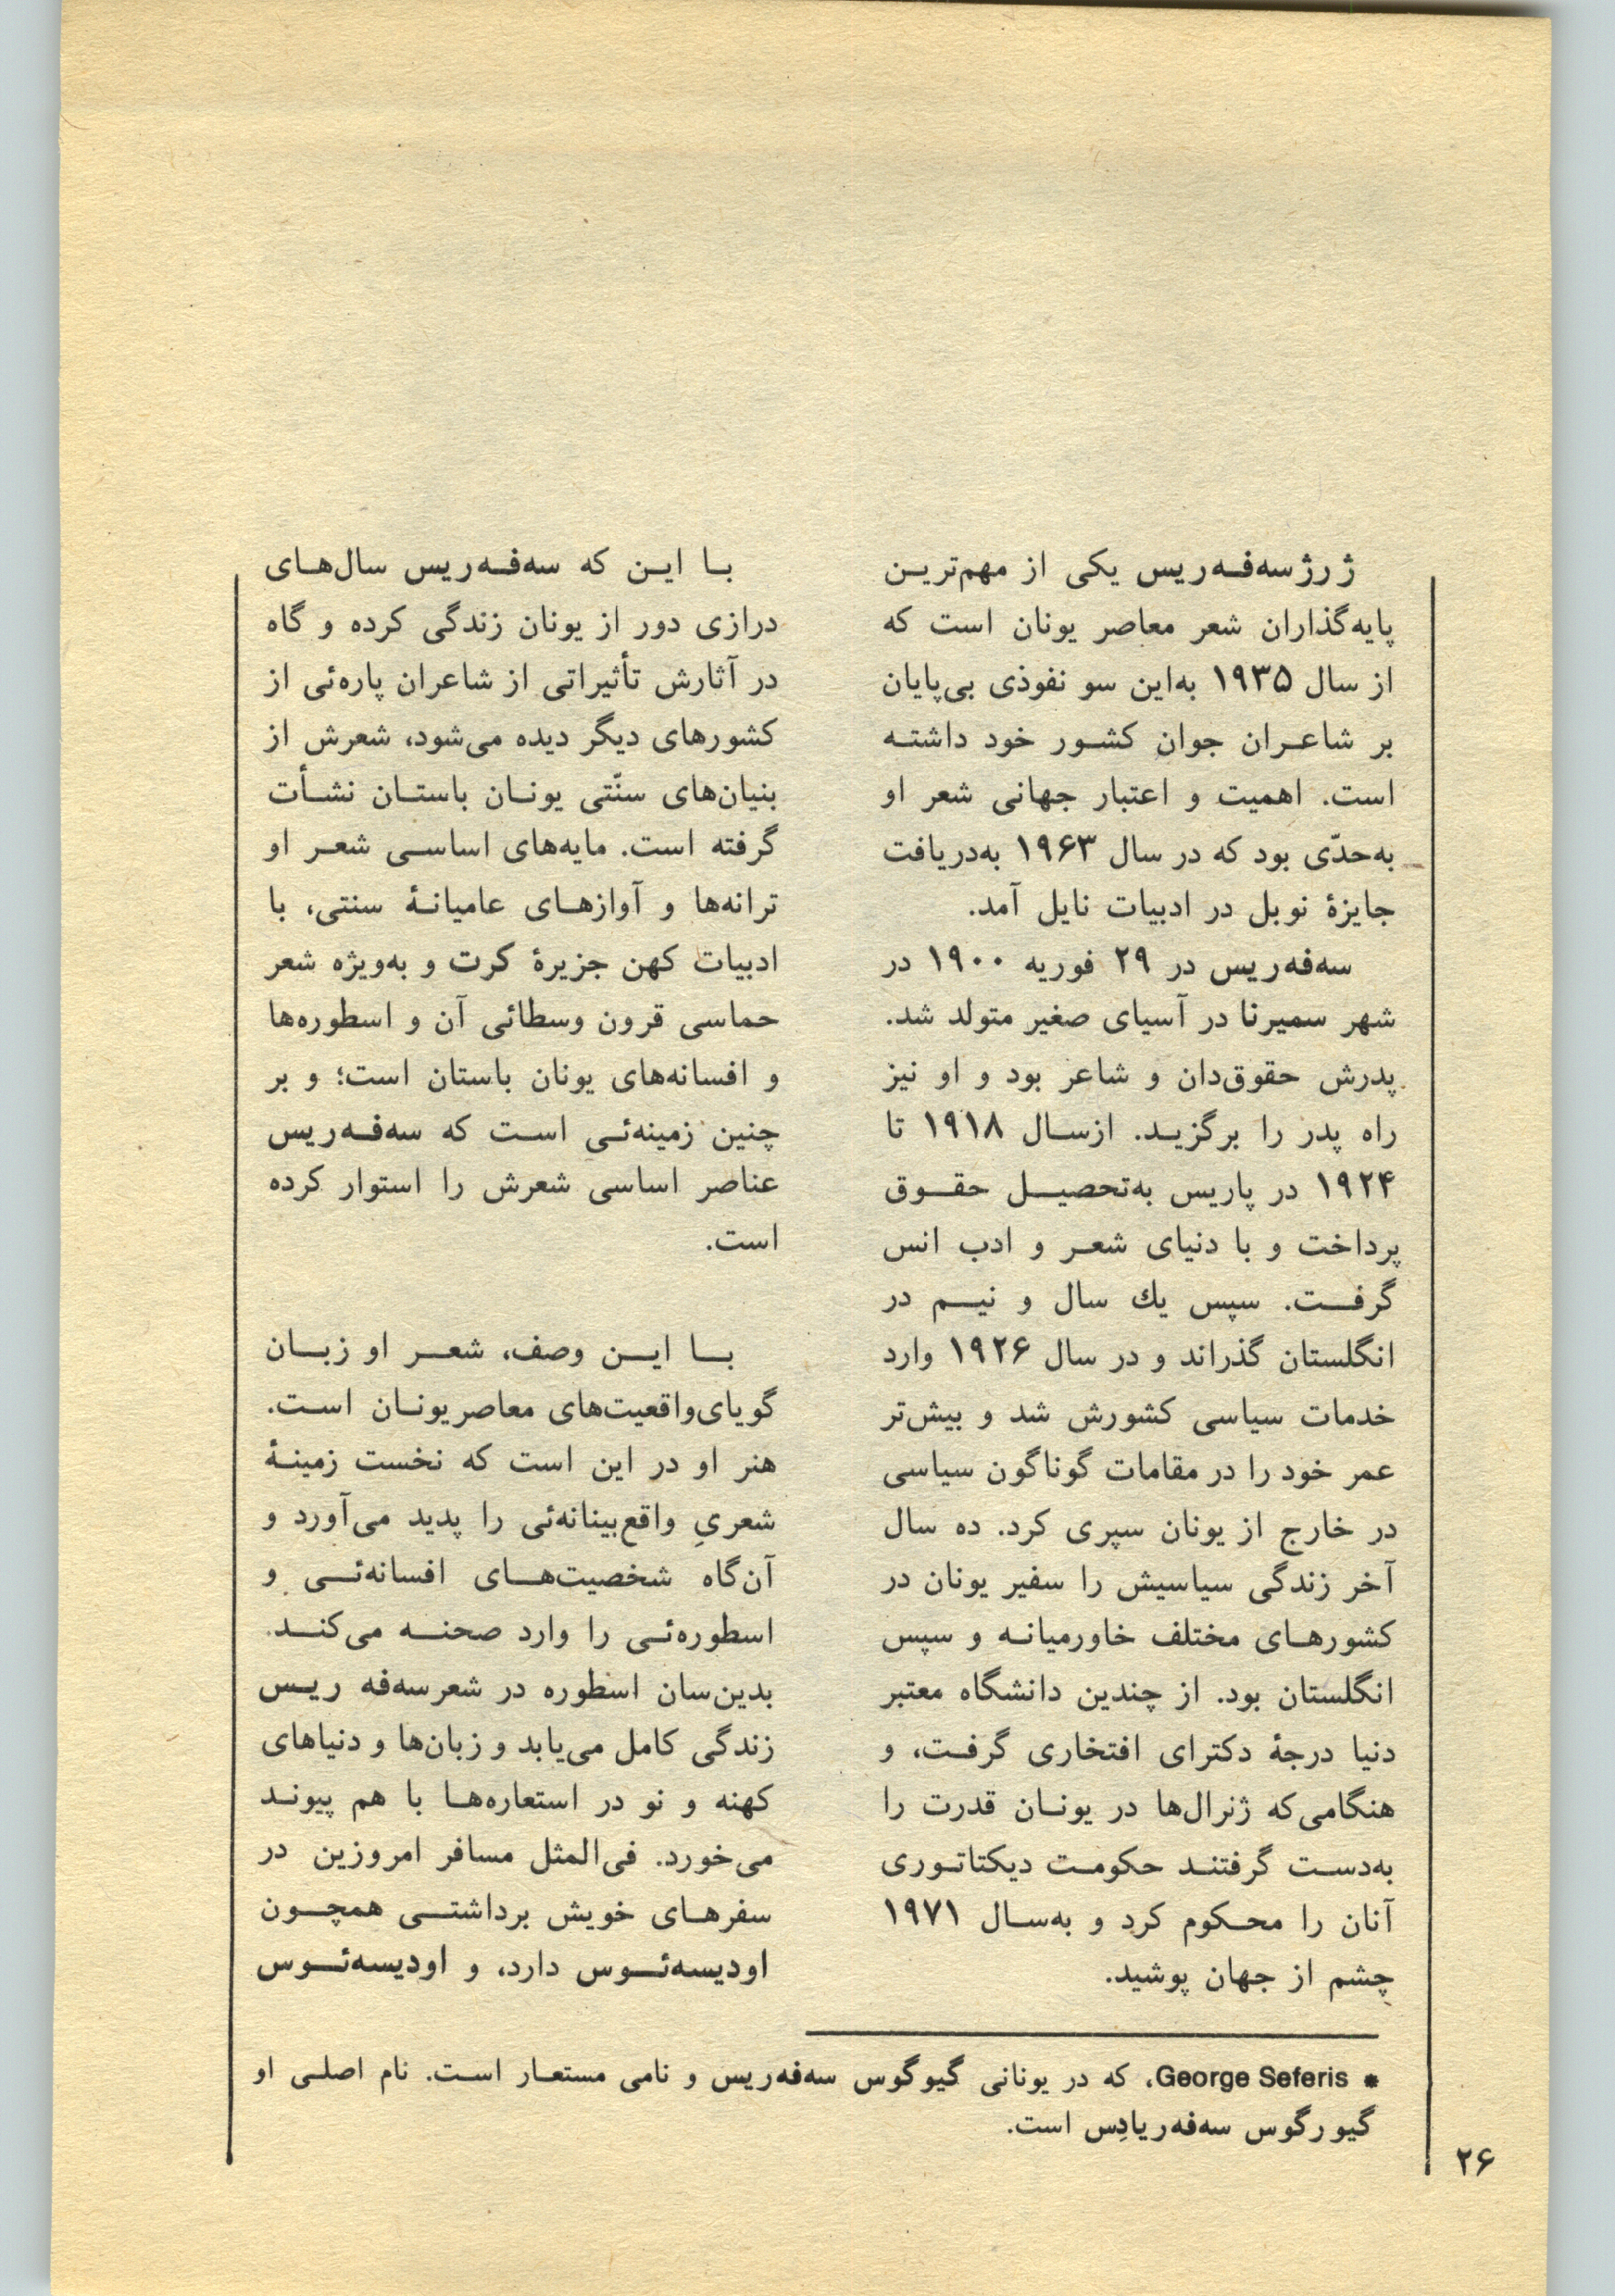 ژرژ سه‌فه‌ریس یکی از مهم‌ترین
پایه‌گذاران شعر معاصر یونان است که
از سال ۱۹۳۵ به‌این سو نفوذی بی‌پایان
بر شاعران جوان کشور خود داشته
است. اهمیت و اعتبار جهانی شعر او
به‌حدّی بود که در سال ۱۹۶۳ به‌دریافت
جایزهٔ نوبل در ادبیات نایل آمد.
سه‌فه‌ریس در ۲۹ فوریه ۱۹۰۰ در
شهر سمیرنا در آسیای صغیر متولد شد.
پدرش حقوق‌دان و شاعر بود و او نیز
راه پدر را برگزید. ازسال ۱۹۱۸ تا
۱۹۲۴ در پاریس به‌تحصیل حقوق
پرداخت و با دنیای شعر و ادب انس
گرفت. سپس یك سال و نیم در
انگلستان گذراند و در سال ۱۹۲۶ وارد
خدمات سیاسی کشورش شد و بیش‌تر
عمر خود را در مقامات گوناگون سیاسی
در خارج از یونان سپری کرد. ده سال
آخر زندگی سیاسیش را سفیر یونان در
کشورهای مختلف خاورمیانه و سپس
انگلستان بود. از چندین دانشگاه معتبر
دنیا درجهٔ دکترای افتخاری گرفت، و
هنگامی‌که ژنرال‌ها در یونان قدرت را
به‌دست گرفتند حکومت دیکتاتوری
آنان را محکوم کرد و به‌سال ۱۹۷۱
چشم از جهان پوشید.
با این که سه‌فه‌ریس سال‌های
درازی دور از یونان زندگی کرده و گاه
در آثارش تأثیراتی از شاعران پاره‌ئی از
کشورهای دیگر دیده می‌شود، شعرش از
بنیان‌های سنّتی یونان باستان نشأت
گرفته است. مایه‌های اساسی شعر او
ترانه‌ها و آوازهای عامیانهٔ سنتی، با
ادبیات کهن جزیرهٔ کرت و به‌ویژه شعر
حماسی قرون وسطائی آن و اسطوره‌ها
و افسانه‌های یونان باستان است؛ و بر
چنین زمینه‌ئی است که سه‌فه‌ریس
عناصر اساسی شعرش را استوار کرده
است.
با این وصف، شعر او زبان
گویای‌واقعیت‌های معاصر یونان است.
هنر او در این است که نخست زمینهٔ
شعریِ واقع‌بینانه‌ئی را پدید می‌آورد و
آن‌گاه شخصیت‌های افسانه‌ئی و
اسطوره‌ئی را وارد صحنه می‌کند.
بدین‌سان اسطوره در شعر سه‌فه ریس
زندگی کامل می‌یابد و زبان‌ها و دنیاهای
کهنه و نو در استعاره‌ها با هم پیوند
می‌خورد. فی‌المثل مسافر امروزین در
سفرهای خویش برداشتی همچون
اودیسه‌ئوس دارد، و اودیسه‌ئوس
* George Seferis، که در یونانی گیوگوس سه‌فه‌ریس و نامی مستعار است. نام اصلی او
گیورگوس سه‌فه‌ریادِس است.
۲۶